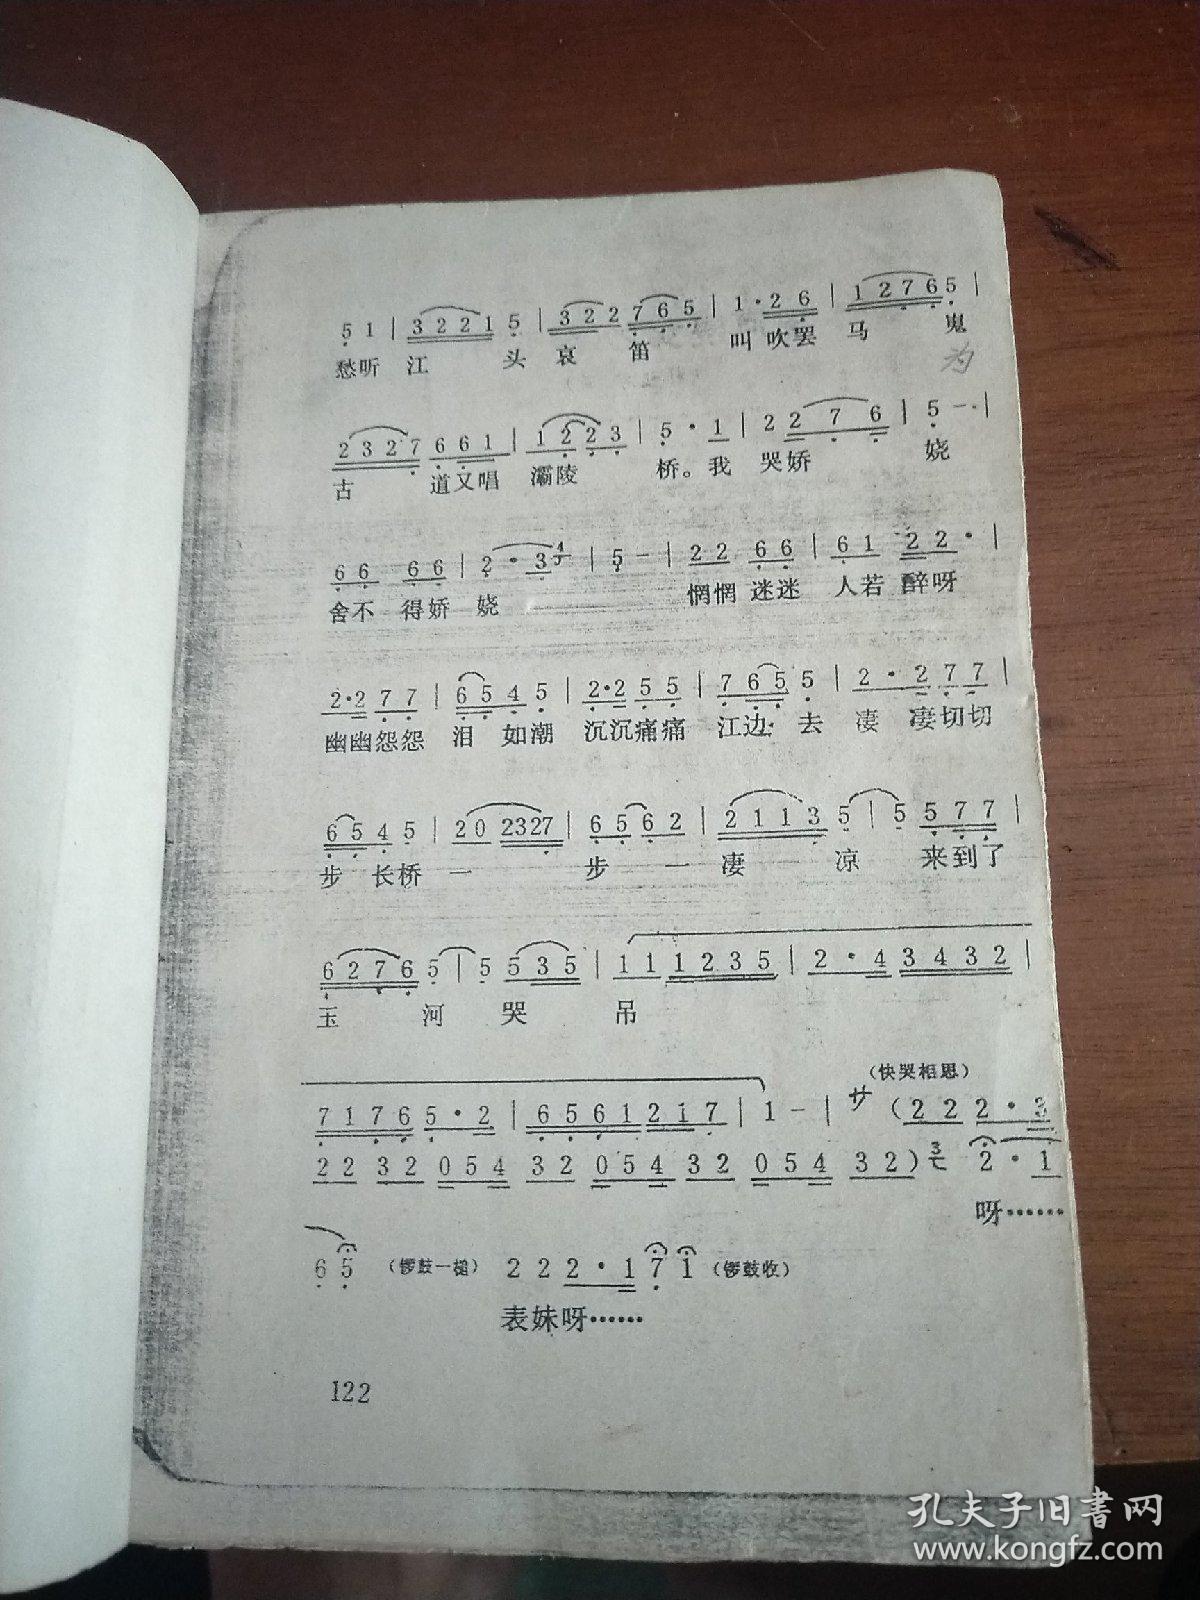 5 1 | 3 2 2 1 5 | 3 2 2 7 6 5 | 1 · 2 6 | 1 2 7 6 5 |
愁听 江 头 哀 笛 叫 吹罢 马 嵬
为
2 3 2 7 6 6 1 | 1 2 2 3 | 5 · 1 | 2 2 7 6 | 5 － |
古 道又唱 灞陵 桥。我 哭娇 娆
6 6 6 6 | 2 · 3 4 | 5 － | 2 2 6 6 | 6 1 2 2 · |
舍不 得娇 娆 惘惘 迷迷 人若 醉呀
2 · 2 7 7 | 6 5 4 5 | 2 · 2 5 5 | 7 6 5 5 | 2 · 2 7 7 |
幽幽怨怨 泪 如潮 沉沉痛痛 江边 去 凄 凄切切
6 5 4 5 | 2 0 2327 | 6 5 6 2 | 2 1 1 3 5 | 5 5 7 7 |
步 长桥 一 步 一 凄 凉 来到了
6 2 7 6 5 | 5 5 3 5 | 1 1 1 2 3 5 | 2 · 4 3 4 3 2 |
玉 河 哭 吊
(快哭相思)
7 1 7 6 5 · 2 | 6 5 6 1 2 1 7 | 1 － | サ ( 2 2 2 · 3
2 2 3 2 0 5 4 3 2 0 5 4 3 2 0 5 4 3 2 ) 3 2 · 1
呀……
6 5 (锣鼓一槌) 2 2 2 · 1 7 1 (锣鼓收)
表妹呀……
122
孔夫子旧书网
www.kongfz.com